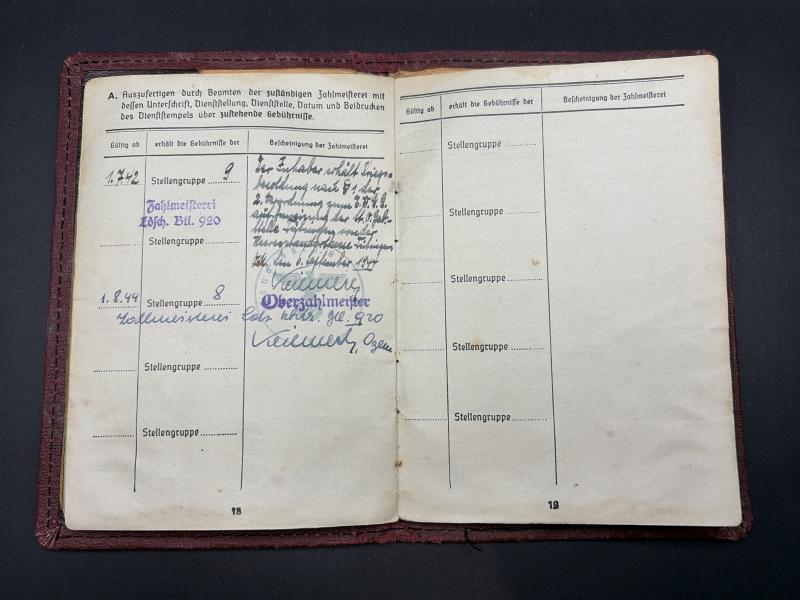 A. Auszufertigen durch Beamten der zuständigen Zahlmeisterei mit
dessen Unterschrift, Dienststellung, Dienststelle, Datum und Beidrucken
des Dienststempels über zustehende Gebührnisse.
Gültig ab
erhält die Gebührnisse der
Bescheinigung der Zahlmeisterei
1.7.42
Stellengruppe 9
Zahlmeisterei
Ldsch. Btl. 920
Stellengruppe
1.8.44
Stellengruppe 8
Zahlmeisterei 920
Stellengruppe
Stellengruppe
Der Inhaber erhält Kriegs-
besoldung nach § 1 der
2. Verordnung zum E.W.G.G.
Tübingen
den 6. September 1944
Oberzahlmeister
18
Gültig ab
erhält die Gebührnisse der
Bescheinigung der Zahlmeisterei
Stellengruppe
Stellengruppe
Stellengruppe
Stellengruppe
Stellengruppe
19